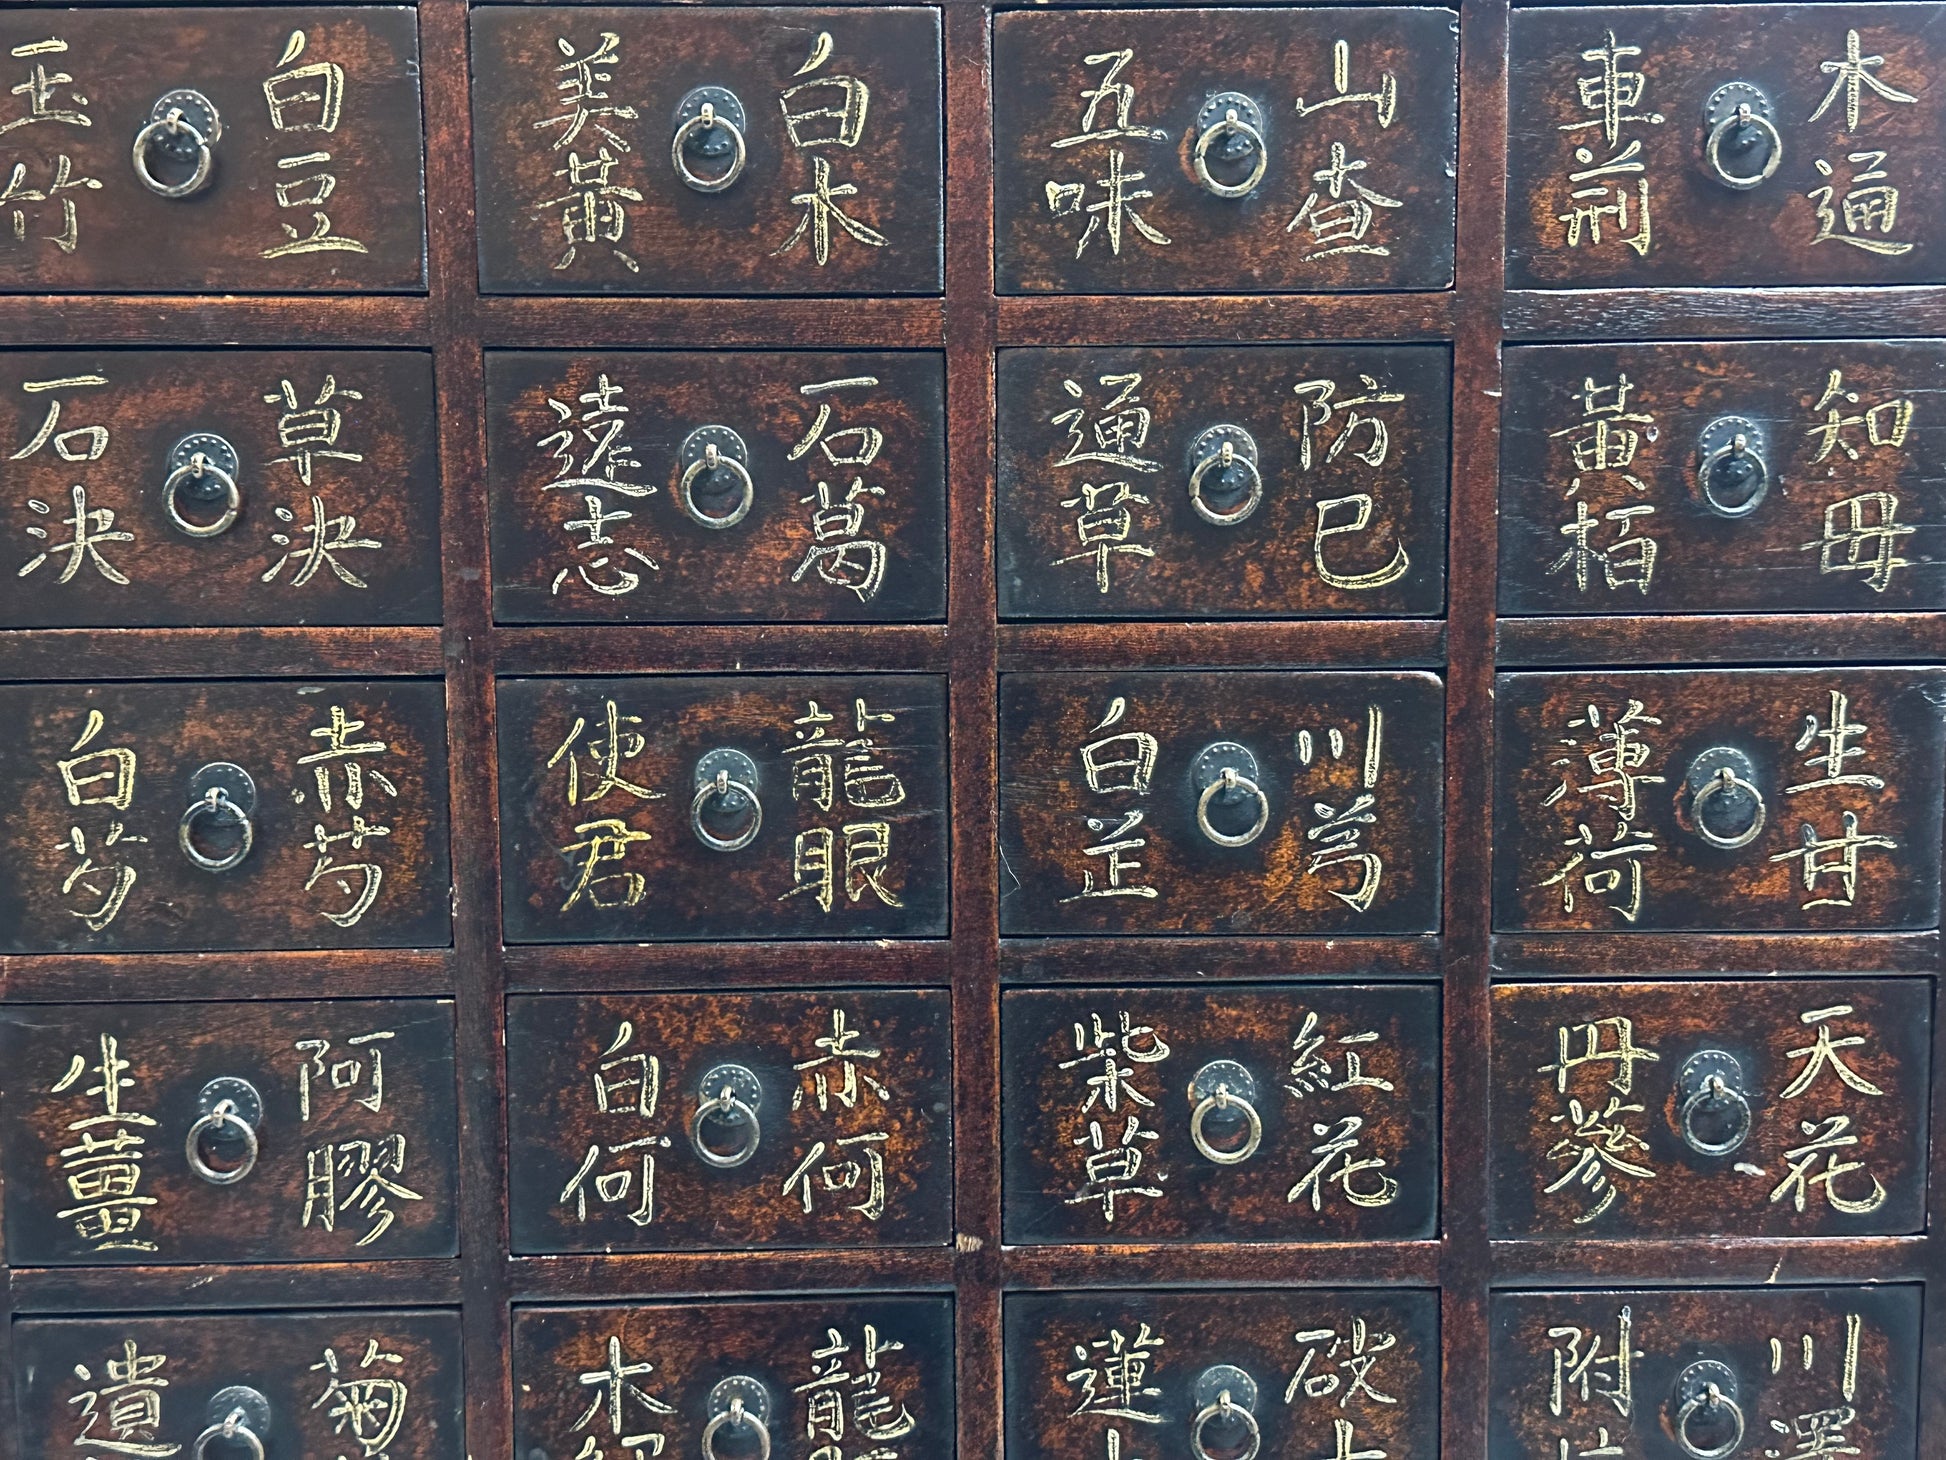 木通
車前
山查
五味
白木
美黃
白豆
玉竹
知母
黃栢
防巳
通草
石葛
遠志
草決
石決
生甘
薄荷
川芎
白芷
龍眼
使君
赤芍
白芍
天花
丹蔘
紅花
柴草
赤何
白何
阿膠
生薑
川澤
附
蓮
龍
木
菊
遺